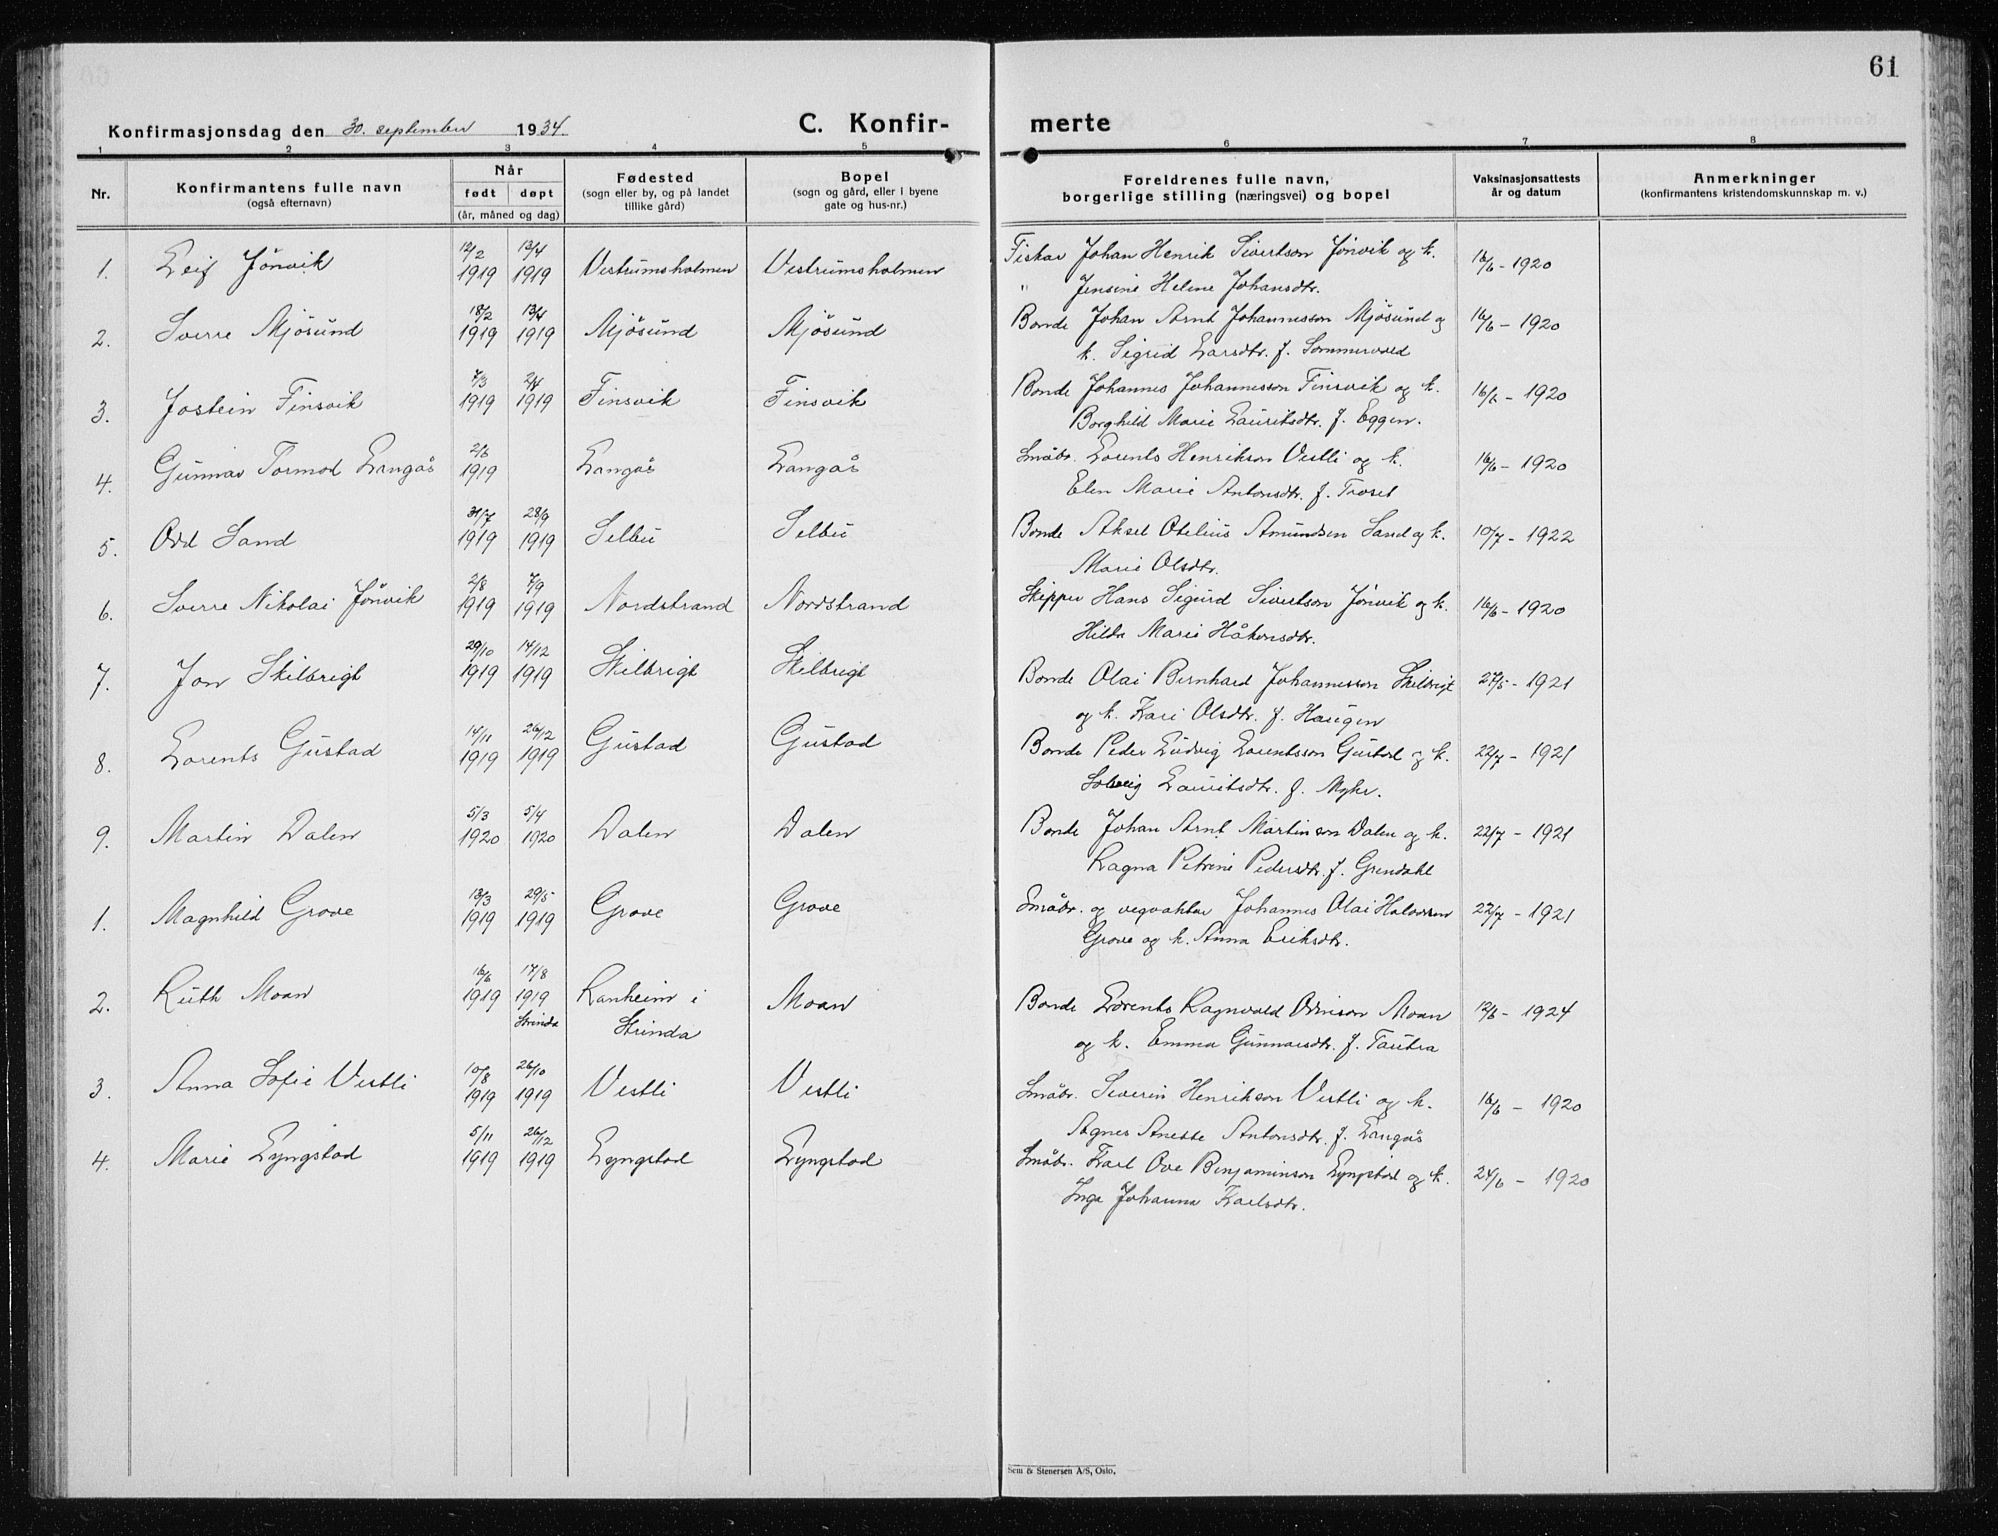 61
Konfirmasjonsdag den 30. september 1934.
C. Konfir-
merte
1 2 3 4 5 6 7 8
Nr.
Konfirmantens fulle navn
(også efternavn)
Når
født døpt
(år, måned og dag)
Fødested
(sogn eller by, og på landet
tillike gård)
Bopel
(sogn og gård, eller i byene
gate og hus-nr.)
Foreldrenes fulle navn,
borgerlige stilling (næringsvei) og bopel
Vaksinasjonsattests
år og datum
Anmerkninger
(konfirmantens kristendomskunnskap m. v.)
1. Leif Jönvik 12/2 1919 13/4 1919 Vestrumsholmen Vestrumsholmen Fisker Johan Henrik Sivertson Jönvik og k. 16/6 - 1920
" Jensine Helene Johansdtr.
2. Sverre Mjösund 18/2 1919 13/4 1919 Mjösund Mjösund Bonde Johan Arnt Johannesson Mjösund og 16/6 - 1920
k. Sigrid Larsdtr. f. Sommervold
3. Jostein Finsvik 7/3 1919 2/4 1919 Finsvik Finsvik Bonde Johannes Johannesson Finsvik og k. 16/6 - 1920
Borghild Marie Lauritsdtr. f. Eggen.
4. Gunnar Tormod Langås 2/6 1919 Langås Langås Småbr. Lorents Henrikson Vestli og k. 16/6 - 1920
Elen Marie Antonsdtr. f. Troset
5. Odd Sand 31/7 1919 28/9 1919 Selbu Selbu Bonde Aksel Otelius Amundsen Sand og k. 10/7 - 1922
Marie Olsdtr.
6. Sverre Nikolai Jönvik 2/8 1919 7/9 1919 Nordstrand Nordstrand Skipper Hans Sigurd Sivertson Jönvik og k. 16/6 - 1920
Hilda Marie Håkonsdtr.
7. Jon Skilbrigt 29/10 1919 14/12 1919 Skilbrigt Skilbrigt Bonde Olai Bernhard Johannesson Skilbrigt 27/5 - 1921
og k. Kari Olsdtr. f. Haugen
8. Lorents Gustad 14/11 1919 26/12 1919 Gustad Gustad Bonde Peder Ludvig Lorentsson Gustad og k. 22/7 - 1921
Solveig Lauritsdtr. f. Myhr.
9. Martin Dalen 5/3 1920 5/4 1920 Dalen Dalen Bonde Johan Arnt Martinson Dalen og k. 22/7 - 1921
Ragna Petrine Pedersdtr. f. Grendahl
1. Magnhild Grove 13/3 1919 29/5 1919 Grove Grove Småbr. og vegvakter Johannes Olai Halvorsen 22/7 - 1921
Grove og k. Anna Eriksdtr.
2. Ruth Moan 16/6 1919 17/8 1919 Strinda Ranheim i Strinda Moan Bonde Lorents Ragnvald Odinson Moan 12/6 - 1924
og k. Emma Gunnarsdtr. f. Tautra
3. Anna Sofie Vestli 10/8 1919 26/10 1919 Vestli Vestli Småbr. Severin Henrikson Vestli og k. 16/6 - 1920
Agnes Anette Antonsdtr. f. Langås
4. Marie Lyngstad 5/11 1919 26/12 1919 Lyngstad Lyngstad Småbr. Karl Ove Benjaminson Lyngstad og k. 24/6 - 1920
Inga Johanna Karlsdtr.
Sem & Stenersen A/S, Oslo.